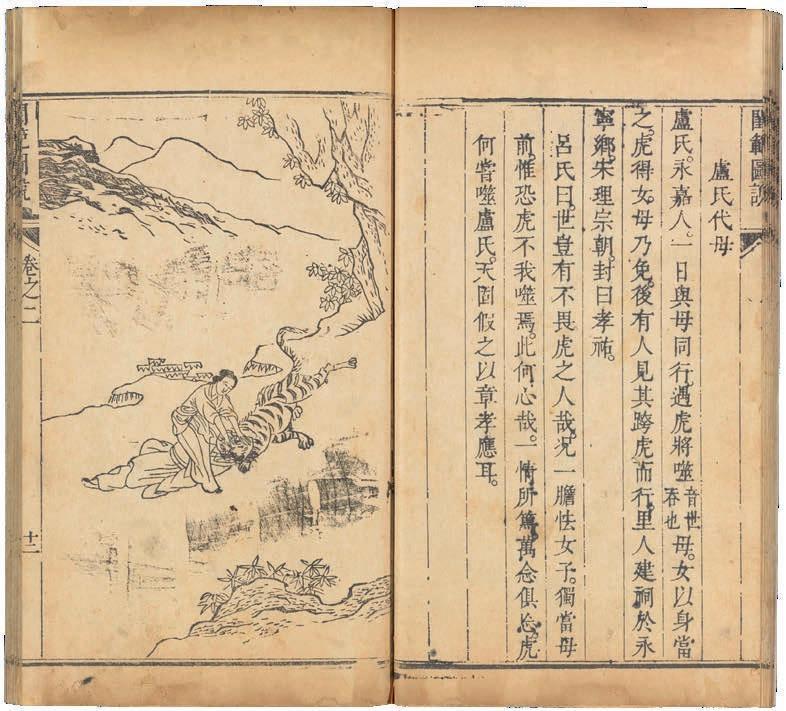 閨範圖說
盧氏代母
盧氏。永嘉人。一日與母同行。遇虎將噬音世吞也母。女以身當
之。虎得女。母乃免。後有人見其跨虎而行。里人建祠於永
寧鄉。宋理宗朝。封曰孝祐。
呂氏曰。世豈有不畏虎之人哉。況一膽怯女子。獨當母
前。惟恐虎不我噬焉。此何心哉。一情所篤。萬念俱忘。虎
何嘗噬盧氏。天固假之以章孝應耳。
卷之二
十二